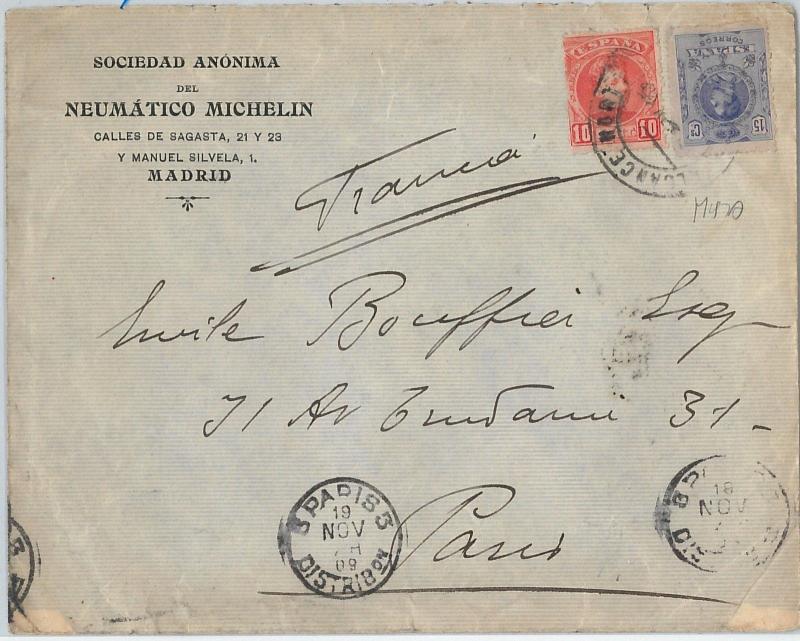 SOCIEDAD ANÓNIMA
DEL
NEUMÁTICO MICHELIN
CALLES DE SAGASTA, 21 Y 23
Y MANUEL SILVELA, 1.
MADRID
ESPAÑA
10 10
ESPAÑA
CORREOS
15 Cs
Francia
Emile Bouffier Esq
71 Av 31-
Paris
3 PARIS 3
19
NOV
09
DISTRIBON
18
NOV